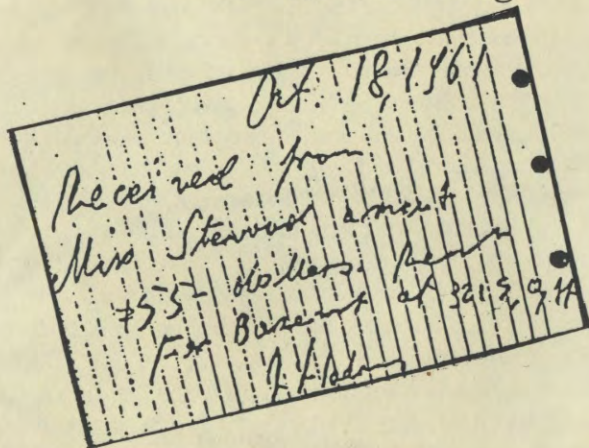 Oct. 18, 1961
Received from
Miss Steward amout
#55 dollars. Rent
For Basemt at 321 S. 9th